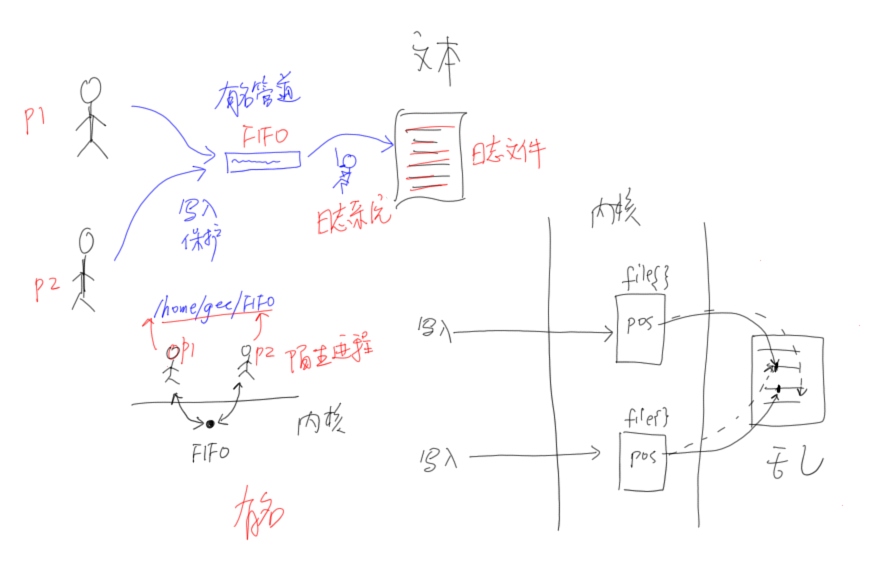 文本
P1
有名管道
FIFO
日志文件
日志系统
写入
保护
P2
/home/gec/FIFO
P1
P2
陌生进程
内核
FIFO
有名
内核
file{}
写入
pos
file{}
写入
pos
乱